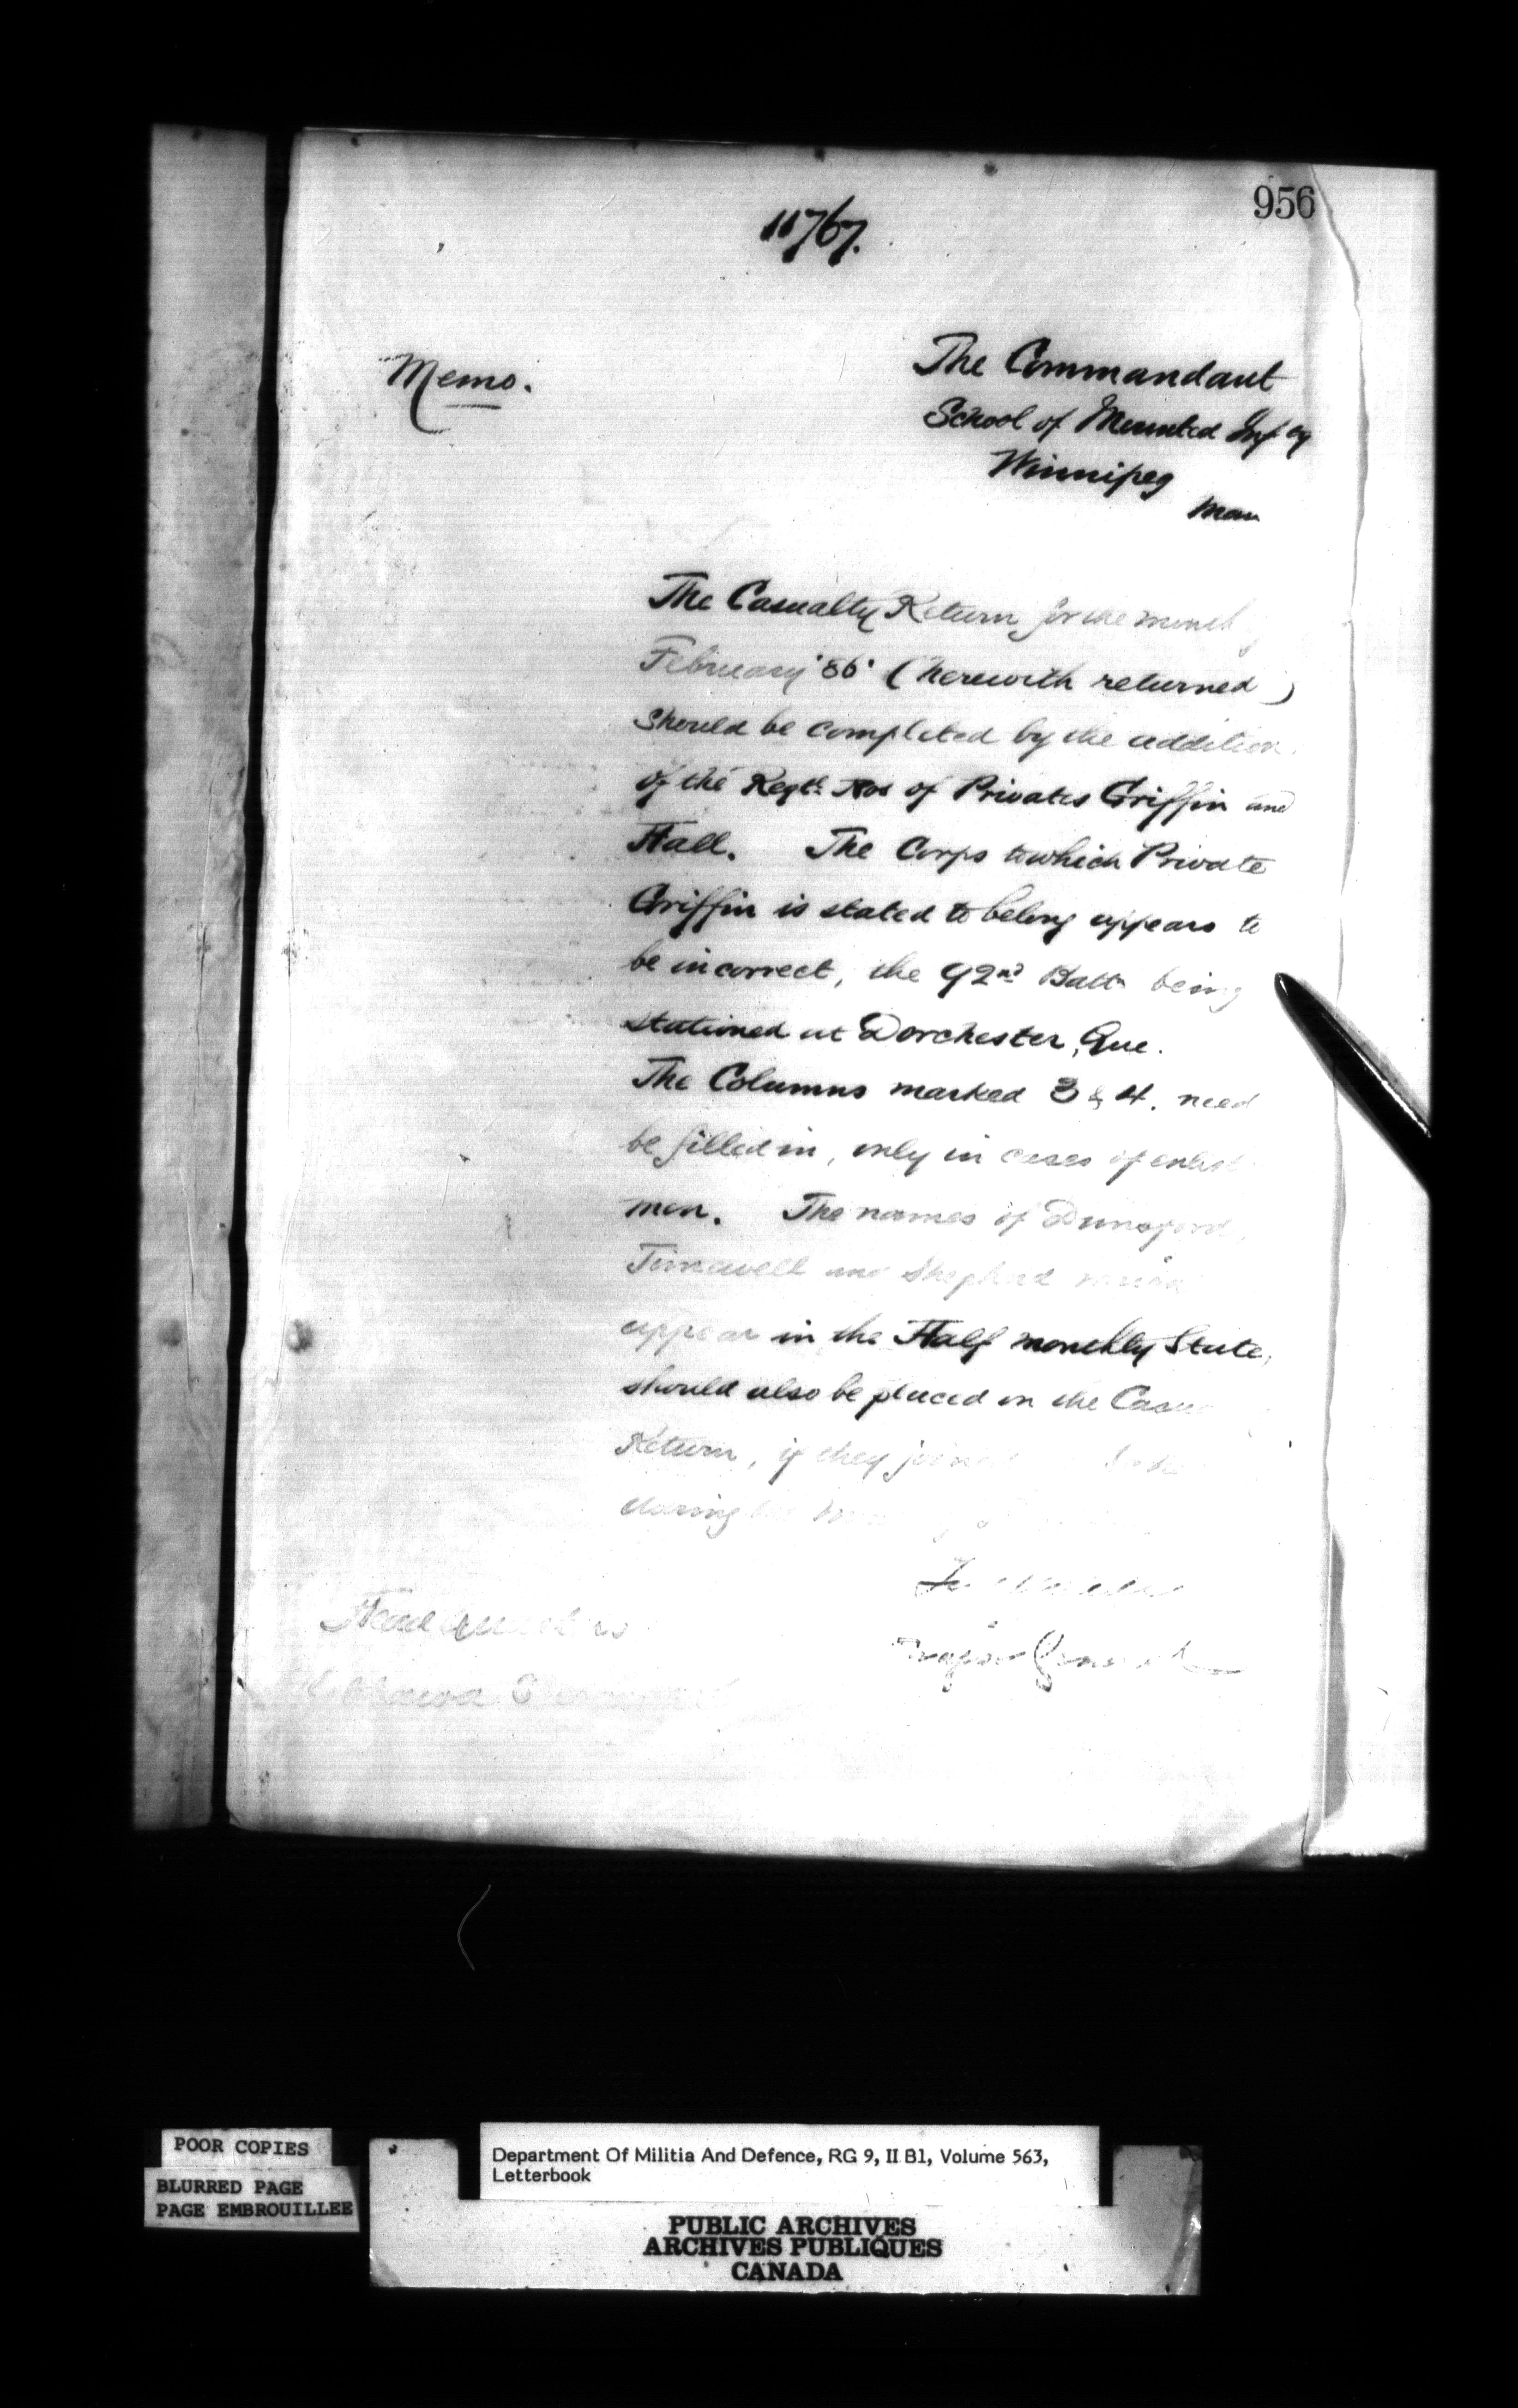 956
11767.
Memo.
The Commandant
School of Mounted Infy
Winnipeg
Man
The Casualty Return for the month
February '86' (herewith returned)
should be completed by the addition
of the Regtl. Nos of Privates Griffin and
Hall. The Corps to which Private
Griffin is stated to belong appears to
be incorrect, the 92nd Battn being
stationed at Dorchester, Que.
The Columns marked 3 & 4. need
be filled in, only in cases of enlist
men. The names of Dunsford,
Timewell and Shepherd which
appear in the Half monthly State,
should also be placed on the Casu
Return, if they joined
during
Head Quarters
Major General
Ottawa
POOR COPIES
BLURRED PAGE
PAGE EMBROUILLEE
Department Of Militia And Defence, RG 9, II B1, Volume 563,
Letterbook
PUBLIC ARCHIVES
ARCHIVES PUBLIQUES
CANADA